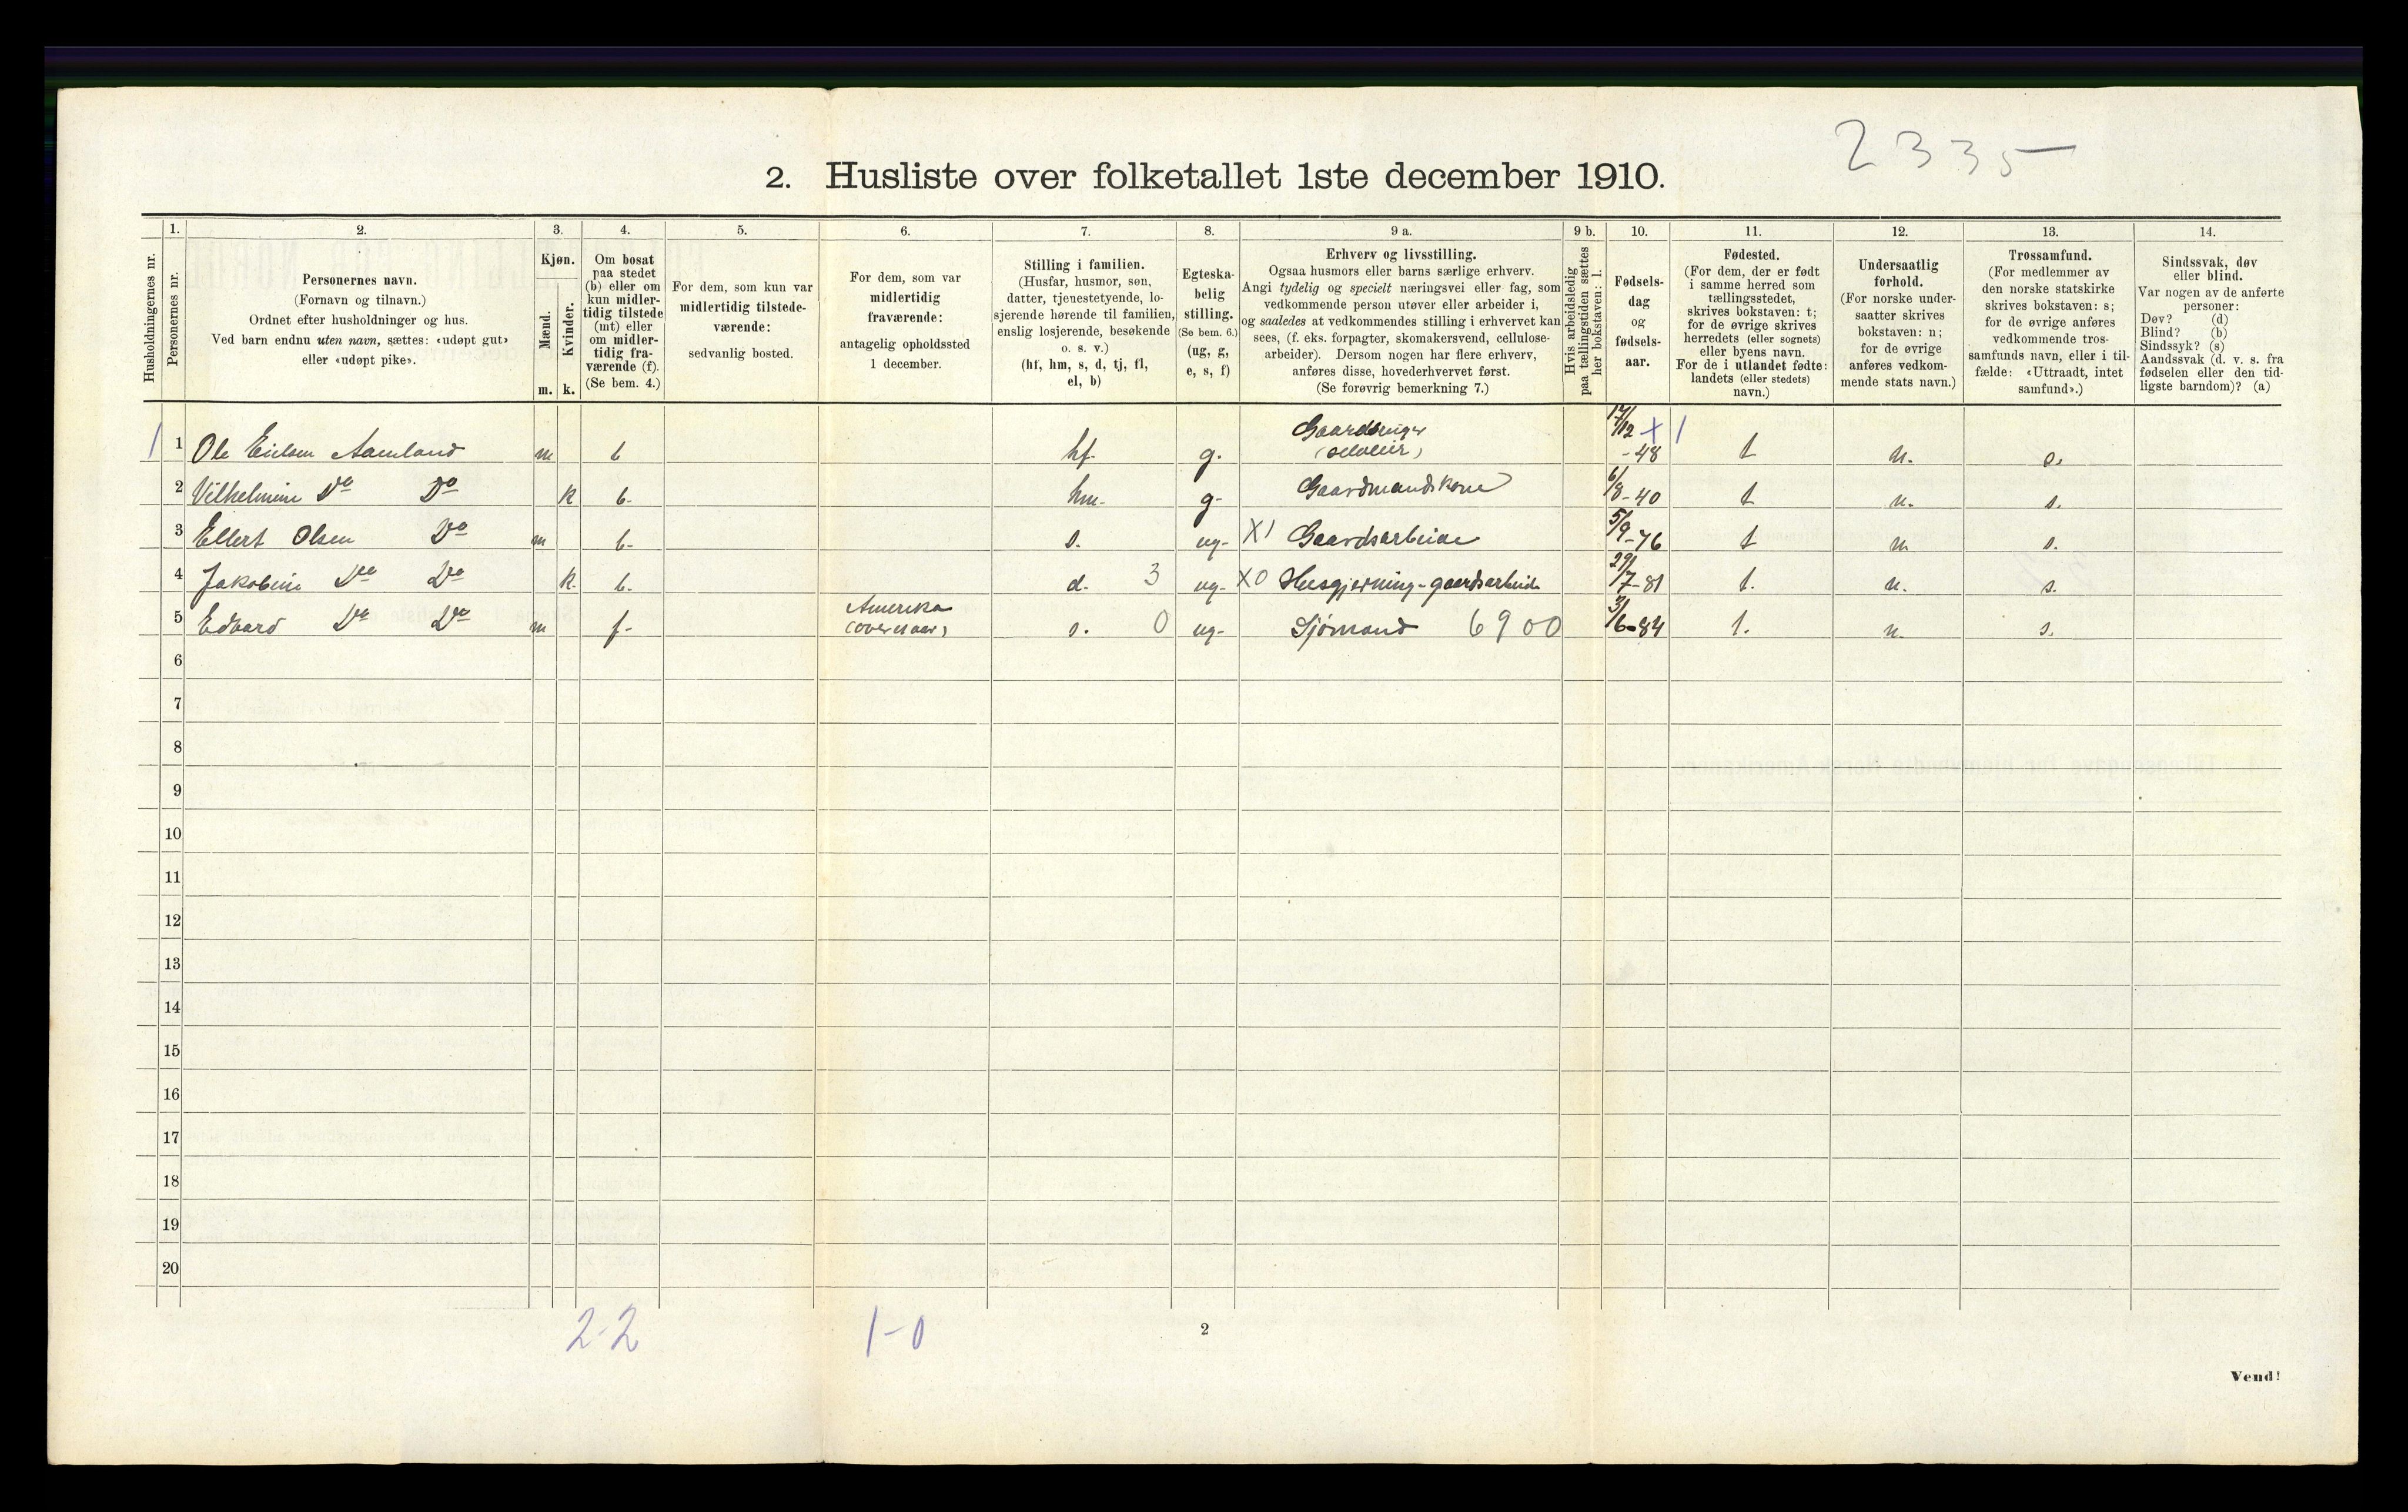 2335
2. Husliste over folketallet 1ste december 1910.
Husholdningernes nr.
1.
Personernes nr.
2.
Personernes navn.
(Fornavn og tilnavn.)
Ordnet efter husholdninger og hus.
Ved barn endnu uten navn, sættes: «udøpt gut»
eller «udøpt pike».
3.
Kjøn.
Mænd.
Kvinder.
m. k.
4.
Om bosat
paa stedet
(b) eller om
kun midler-
tidig tilstede
(mt) eller
om midler-
tidig fra-
værende (f).
(Se bem. 4.)
5.
For dem, som kun var
midlertidig tilstede-
værende:
sedvanlig bosted.
6.
For dem, som var
midlertidig
fraværende:
antagelig opholdssted
1 december.
7.
Stilling i familien.
(Husfar, husmor, søn,
datter, tjenestetyende, lo-
sjerende hørende til familien,
enslig losjerende, besøkende
o. s. v.)
(hf, hm, s, d, tj, fl,
el, b)
8.
Egteska-
belig
stilling.
(Se bem. 6.)
(ug, g,
e, s, f)
9 a.
Erhverv og livsstilling.
Ogsaa husmors eller barns særlige erhverv.
Angi tydelig og specielt næringsvei eller fag, som
vedkommende person utøver eller arbeider i,
og saaledes at vedkommendes stilling i erhvervet kan
sees, (f. eks. forpagter, skomakersvend, cellulose-
arbeider). Dersom nogen har flere erhverv,
anføres disse, hovederhvervet først.
(Se forøvrig bemerkning 7.)
9 b.
Hvis arbeidsledig
paa tællingstiden sættes
her bokstaven: l.
10.
Fødsels-
dag
og
fødsels-
aar.
11.
Fødested.
(For dem, der er født
i samme herred som
tællingsstedet,
skrives bokstaven: t;
for de øvrige skrives
herredets (eller sognets)
eller byens navn.
For de i utlandet fødte:
landets (eller stedets)
navn.)
12.
Undersaatlig
forhold.
(For norske under-
saatter skrives
bokstaven: n;
for de øvrige
anføres vedkom-
mende stats navn.)
13.
Trossamfund.
(For medlemmer av
den norske statskirke
skrives bokstaven: s;
for de øvrige anføres
vedkommende tros-
samfunds navn, eller i til-
fælde: «Uttraadt, intet
samfund».)
14.
Sindssvak, døv
eller blind.
Var nogen av de anførte
personer:
Døv? (d)
Blind? (b)
Sindssyk? (s)
Aandssvak (d. v. s. fra
fødselen eller den tid-
ligste barndom)? (a)
1 1 Ole Eielsen Aamland m b hf. g. Gaardbruger (selveier) 17/12 -48 + 1 t n. s.
2 Vilhelmine Do Do k b. hm. g- Gaardmandskone 6/8-40 t n. s.
3 Ellert Olsen Do m b. s. ug- X1 Gaardsarbeide 5/9-76 t n s.
4 Jakobine Do Do k. b. d. 3 ug- X0 Husgjerning-gaardsarbeide 29/7-81 t. n. s.
5 Edvard Do Do m f- Amerika s. 0 ug- Sjømand 6900 3/6-84 t. n. s.
6
7
8
9
10
11
12
13
14
15
16
17
18
19
20
2-2 1-0
2
Vend!